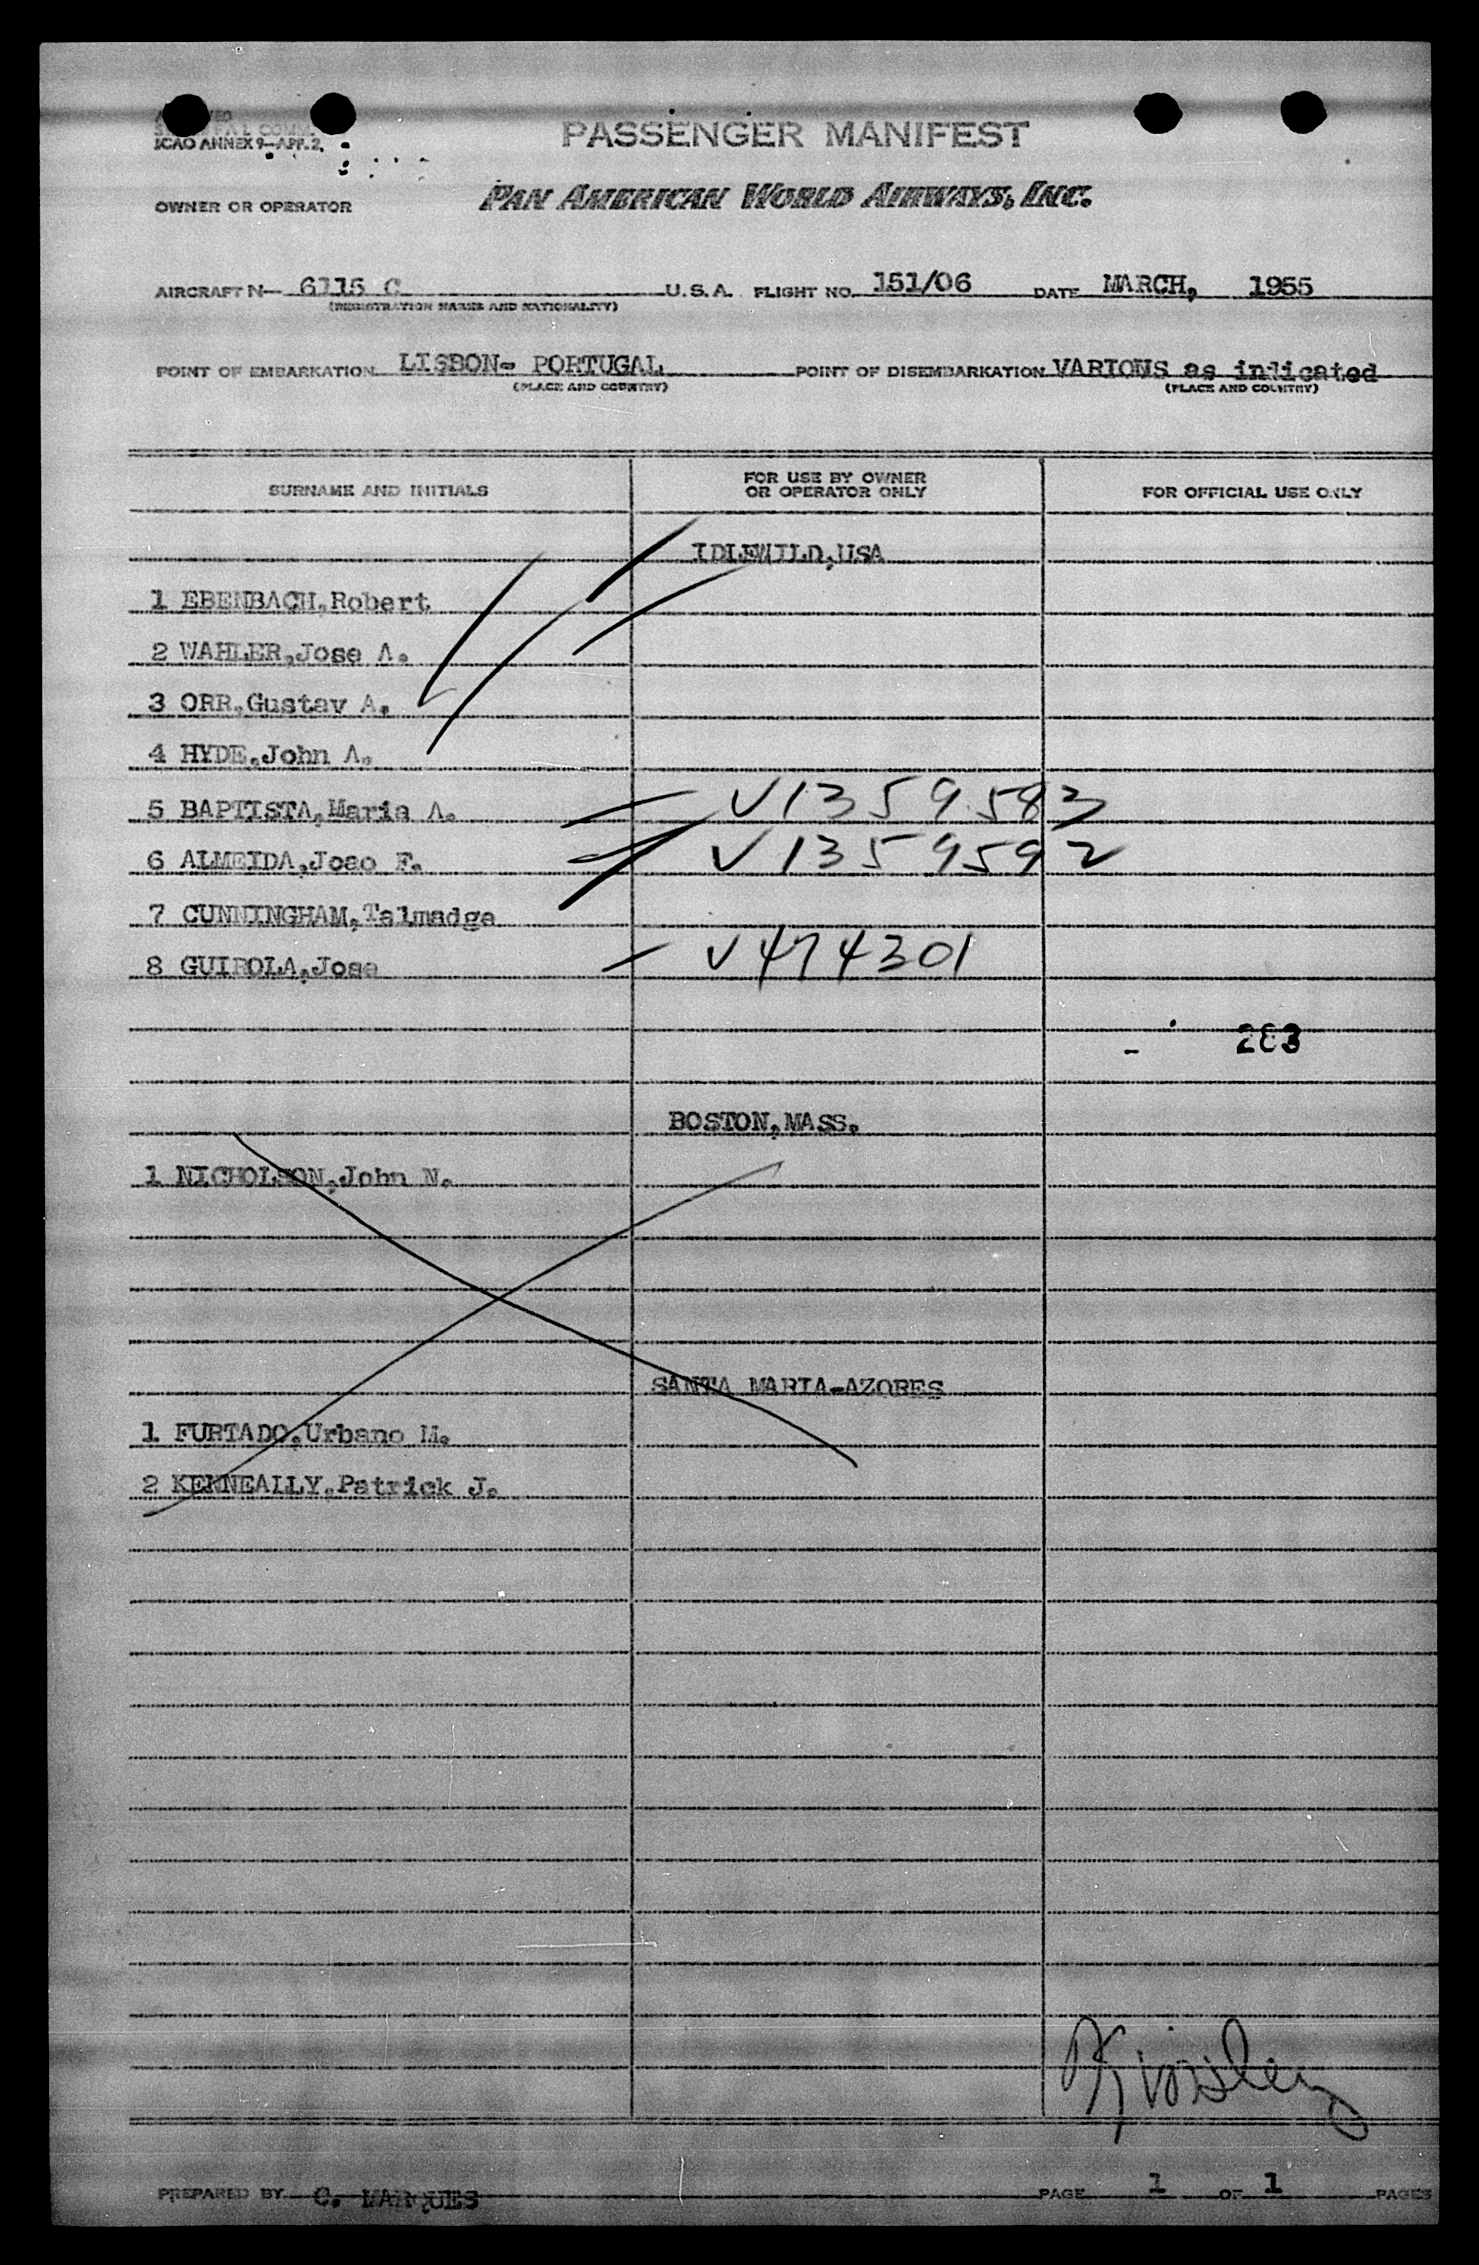 PASSENGER MANIFEST
ICAO ANNEX 9—APP. 2.
OWNER OR OPERATOR PAN AMERICAN WORLD AIRWAYS, INC.
AIRCRAFT N— 6115 C U.S.A. FLIGHT NO. 151/06 DATE MARCH, 1955
(REGISTRATION MARKS AND NATIONALITY)
POINT OF EMBARKATION LISBON- PORTUGAL POINT OF DISEMBARKATION VARIOUS as indicated
(PLACE AND COUNTRY) (PLACE AND COUNTRY)
SURNAME AND INITIALS FOR USE BY OWNER OR OPERATOR ONLY FOR OFFICIAL USE ONLY
IDLEWILD,USA
1 EBENBACH,Robert
2 WAHLER,Jose A.
3 ORR,Gustav A.
4 HYDE,John A.
5 BAPTISTA,Maria A. V1359583
6 ALMEIDA,Joao F. V1359592
7 CUNNINGHAM,Talmadge
8 GUIROLA,Jose V474301
283
BOSTON,MASS.
1 NICHOLSON,John N.
SANTA MARIA-AZORES
1 FURTADO,Urbano M.
2 KENNEALLY,Patrick J.
PREPARED BY C. MARQUES PAGE 1 OF 1 PAGES